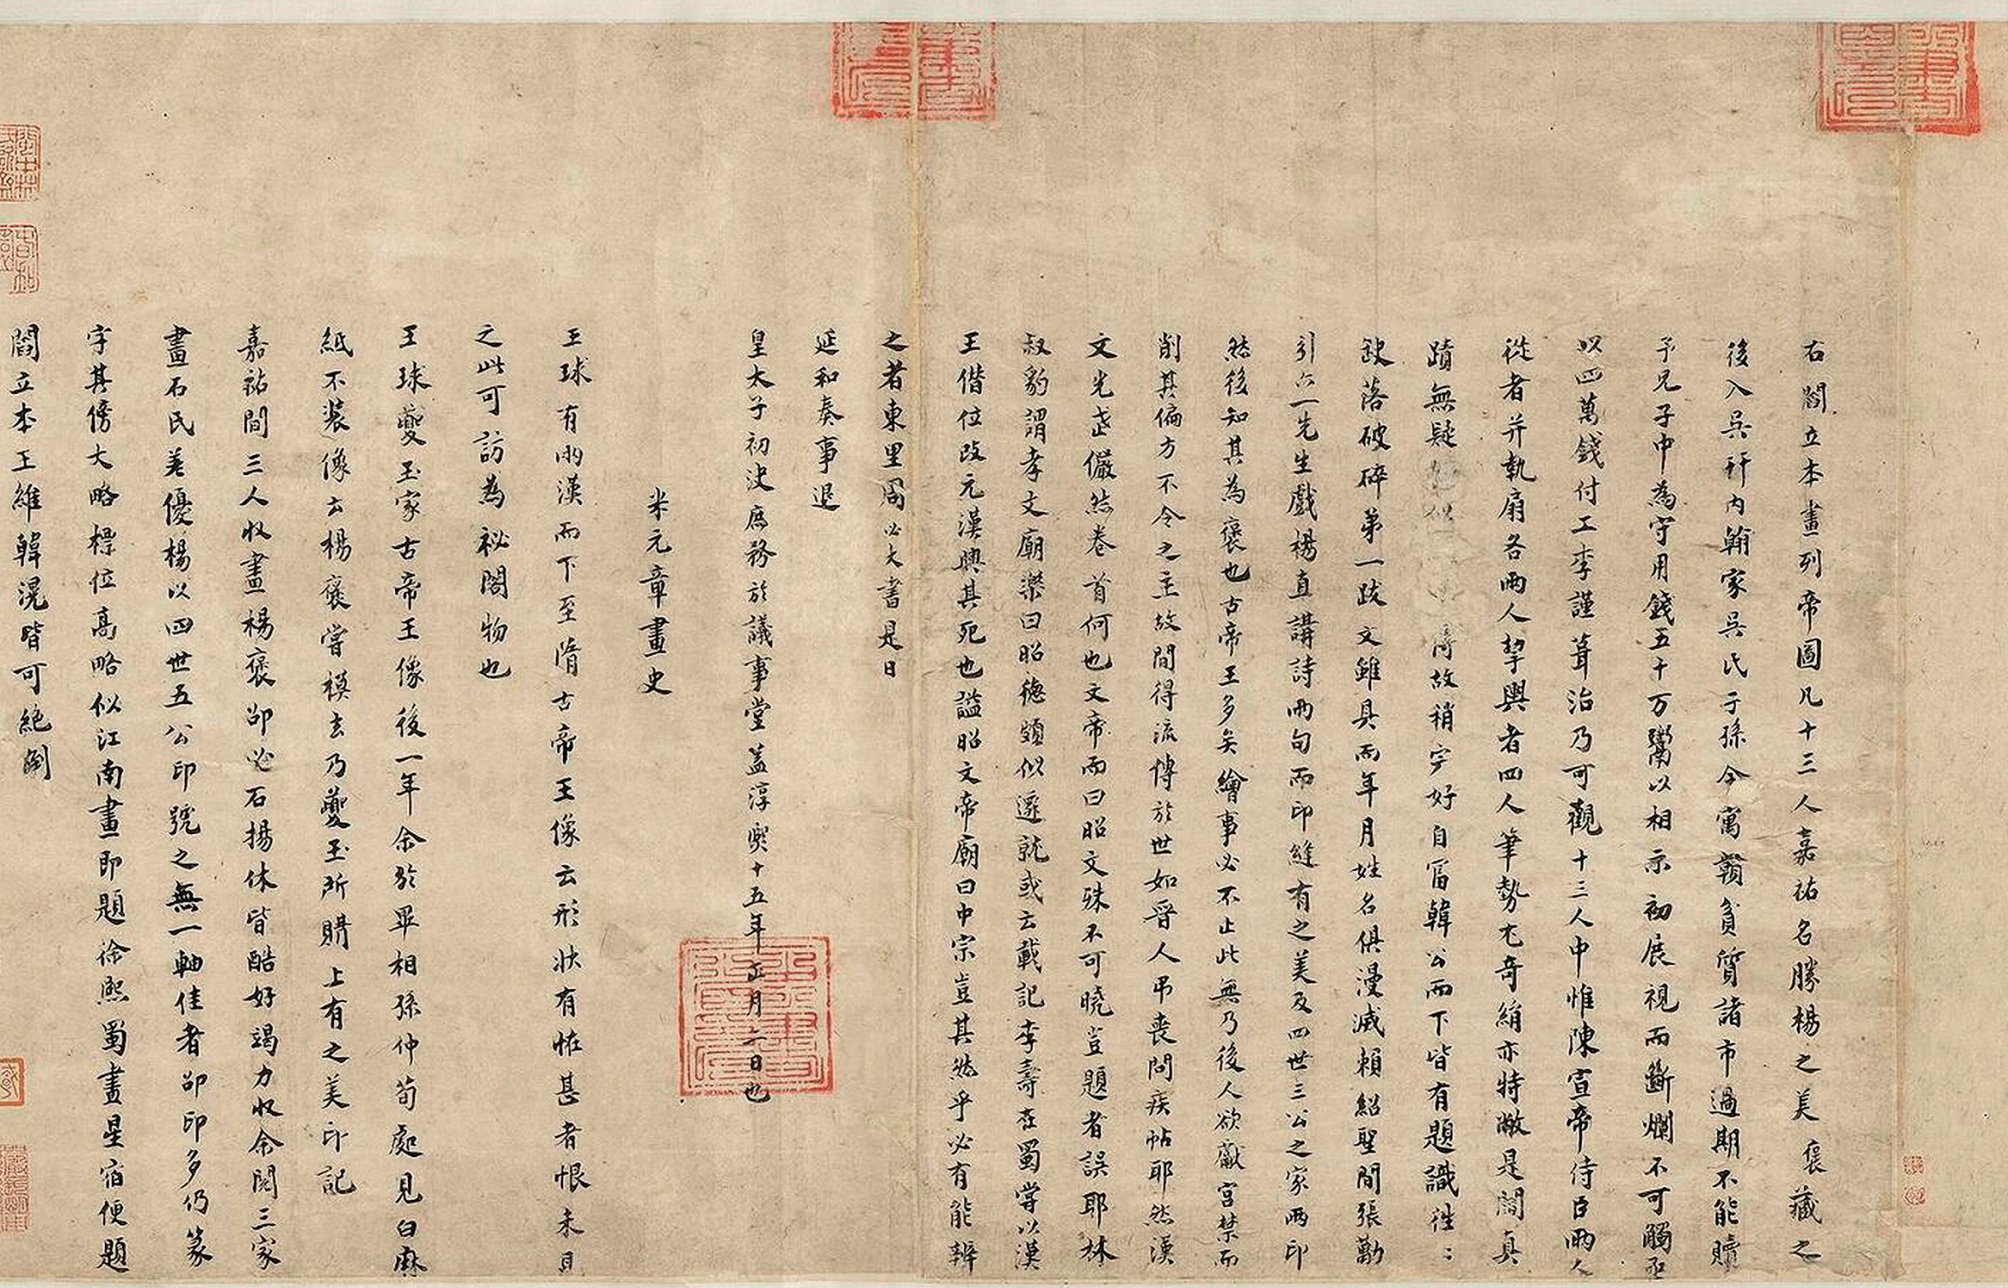 右閻立本畫列帝圖凡十三人嘉祐名勝楊之美褒藏之
後入吳幵內翰家吳氏子孫今寓贛貧質諸市過期不能贖
予兄子中為守用錢五十万鬻以相示初展視而斷爛不可觸亟
以四萬錢付工李謹葺治乃可觀十三人中惟陳宣帝侍臣兩人
從者并執扇各兩人挈輿者四人筆勢尤奇絹亦特敝是閻真
蹟無疑故稍完好自富韓公而下皆有題識徃〻
缺落破碎第一跋文雖具而年月姓名俱漫滅賴紹聖間張勱
引六一先生戲楊直講詩兩句而印縫有之美及四世三公之家兩印
然後知其為褒也古帝王多矣繪事必不止此無乃後人欲獻宮禁而
削其偏方不令之主故間得流愽於世如晉人弔喪問疾帖耶然漢
文光武儼然卷首何也文帝而曰昭文殊不可曉豈題者誤耶林
叔豹謂孝文廟樂曰昭德頗似遷就或云載記李壽在蜀嘗以漢
王僭位改元漢興其死也謚昭文帝廟曰中宗豈其然乎必有能辨
之者東里周必大書是日
延和奏事退
皇太子初決庶務於議事堂蓋淳熙十五年正月二日也
米元章畫史
王球有兩漢而下至隋古帝王像云形狀有怪甚者恨未見
之此可訪為祕閣物也
王球夔玉家古帝王像後一年余於畢相孫仲荀處見白麻
紙不裝像云楊褒嘗模去乃夔玉所購上有之美印記
嘉祐間三人收畫楊褒邵必石揚休皆酷好竭力收余閱三家
畫石民差優楊以四世五公印號之無一軸佳者邵印多仍篆
字其傍大略標位高略似江南畫即題徐熙蜀畫星宿便題
閻立本王維韓滉皆可絶倒